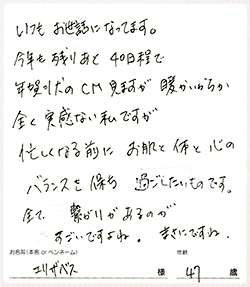 いつも お世話に なってます。
今年も 残りあと 40日程で
年賀状の CM 見ますが 暖かいからか
全く 実感ない 私ですが
忙しくなる前に お肌と 体と 心の
バランスを 保ち 過ごしたいものです。
全て 繋がりが あるのが
すごいですよね。 まさにですね。
お名前(本名 or ペンネーム) 年齢
エリザベス 様 47 歳